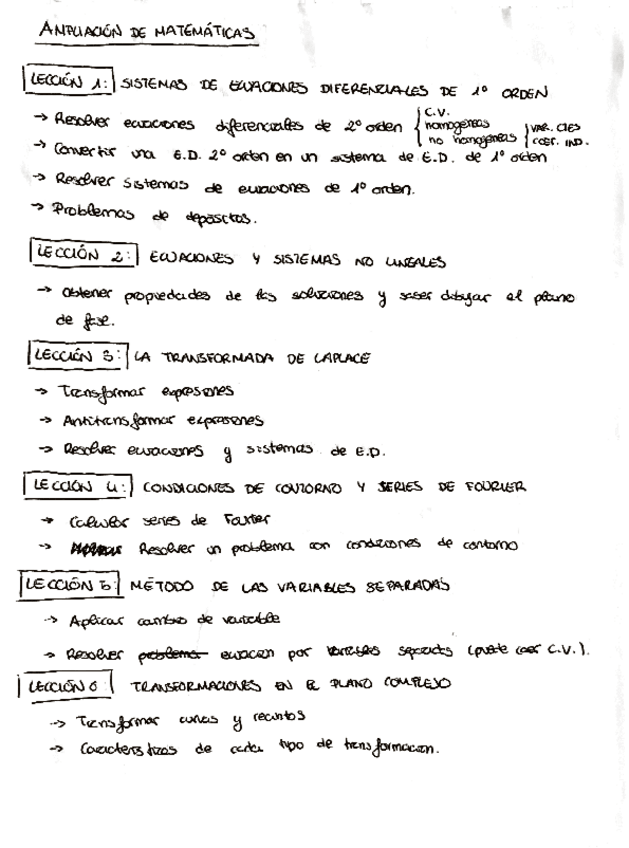 AMPLIACIÓN DE MATEMÁTICAS
LECCIÓN 1: SISTEMAS DE ECUACIONES DIFERENCIALES DE 1º ORDEN
→ Resolver ecuaciones diferenciales de 2º orden { C.V. homogéneas no homogéneas } VAR. CTES COEF. IND.
→ Convertir una E.D. 2º orden en un sistema de E.D. de 1º orden
→ Resolver sistemas de ecuaciones de 1º orden.
→ Problemas de depósitos.
LECCIÓN 2: ECUACIONES Y SISTEMAS NO LINEALES
→ Obtener propiedades de las soluciones y saber dibujar el plano
de fase.
LECCIÓN 3: LA TRANSFORMADA DE LAPLACE
→ Transformar expresiones
→ Antitransformar expresiones
→ Resolver ecuaciones y sistemas de E.D.
LECCIÓN 4: CONDICIONES DE CONTORNO Y SERIES DE FOURIER
→ Calcular series de Fourier
→ Resolver un problema con condiciones de contorno
LECCIÓN 5: MÉTODO DE LAS VARIABLES SEPARADAS
→ Aplicar cambio de variable
→ Resolver problema ecuación por variables separadas (puede caer C.V.).
LECCIÓN 6 TRANSFORMACIONES EN EL PLANO COMPLEJO
→ Transformar curvas y recintos
→ Características de cada tipo de transformación.